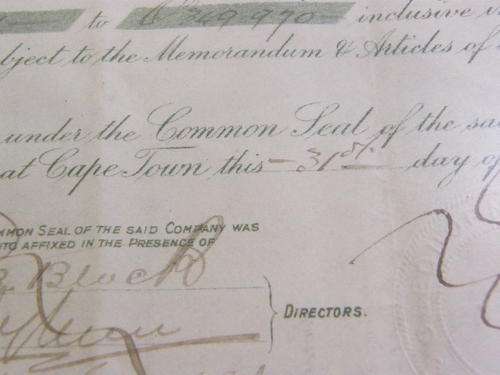 to 249.990 inclusive
bject to the Memorandum & Articles of
under the Common Seal of the sa
at Cape Town this 31st day of
MMON SEAL OF THE SAID COMPANY WAS
TO AFFIXED IN THE PRESENCE OF
Block
DIRECTORS.